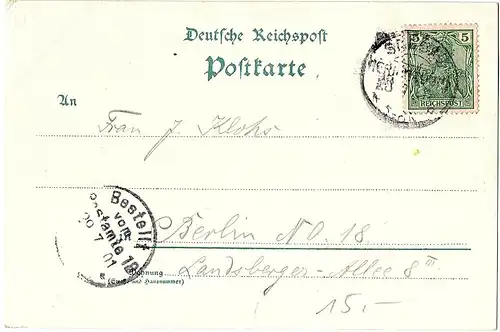 Deutsche Reichspost
Postkarte
5 5
REICHSPOST
An
Frau J. Klohs
Bestellt
vom
Postamte 18
20 7 01
Berlin N.O. 18.
Wohnung
Landsberger-Allee 8 III
(Straße und Hausnummer)
15.-